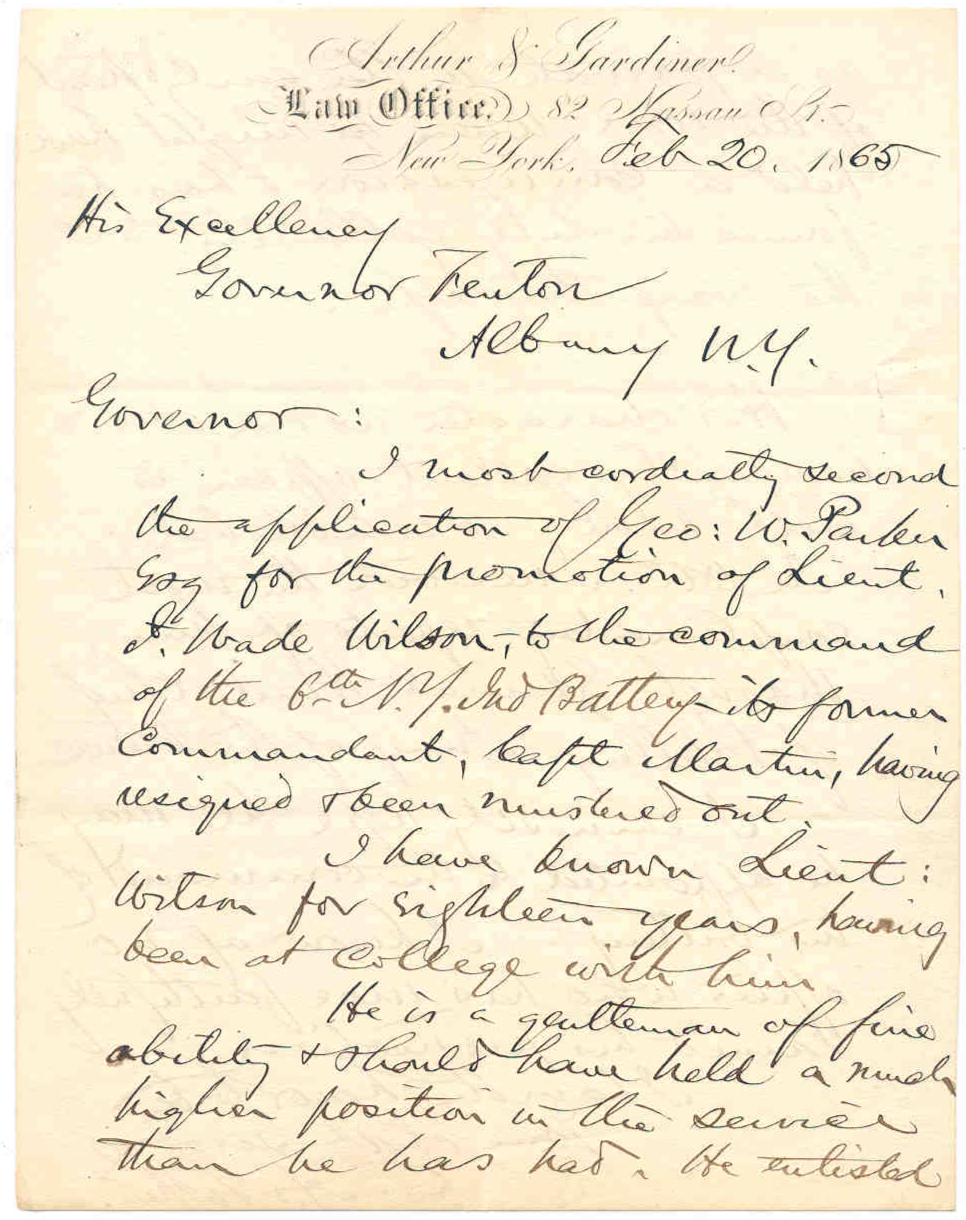 Arthur & Gardiner.
Law Office. 82 Nassau St.
New York. Feb 20. 1865
His Excellency
Governor Fenton
Albany N.Y.
Governor :
I most cordially second
the application of Geo: W. Parker
Esq for the promotion of Lieut.
J. Wade Wilson, to the command
of the 6th N.Y. Ind Battery - its former
Commandant, Capt Martin, having
resigned & been mustered out.
I have known Lieut:
Wilson for eighteen years, having
been at College with him
He is a gentleman of fine
ability & should have held a much
higher position in the service
than he has had. He enlisted